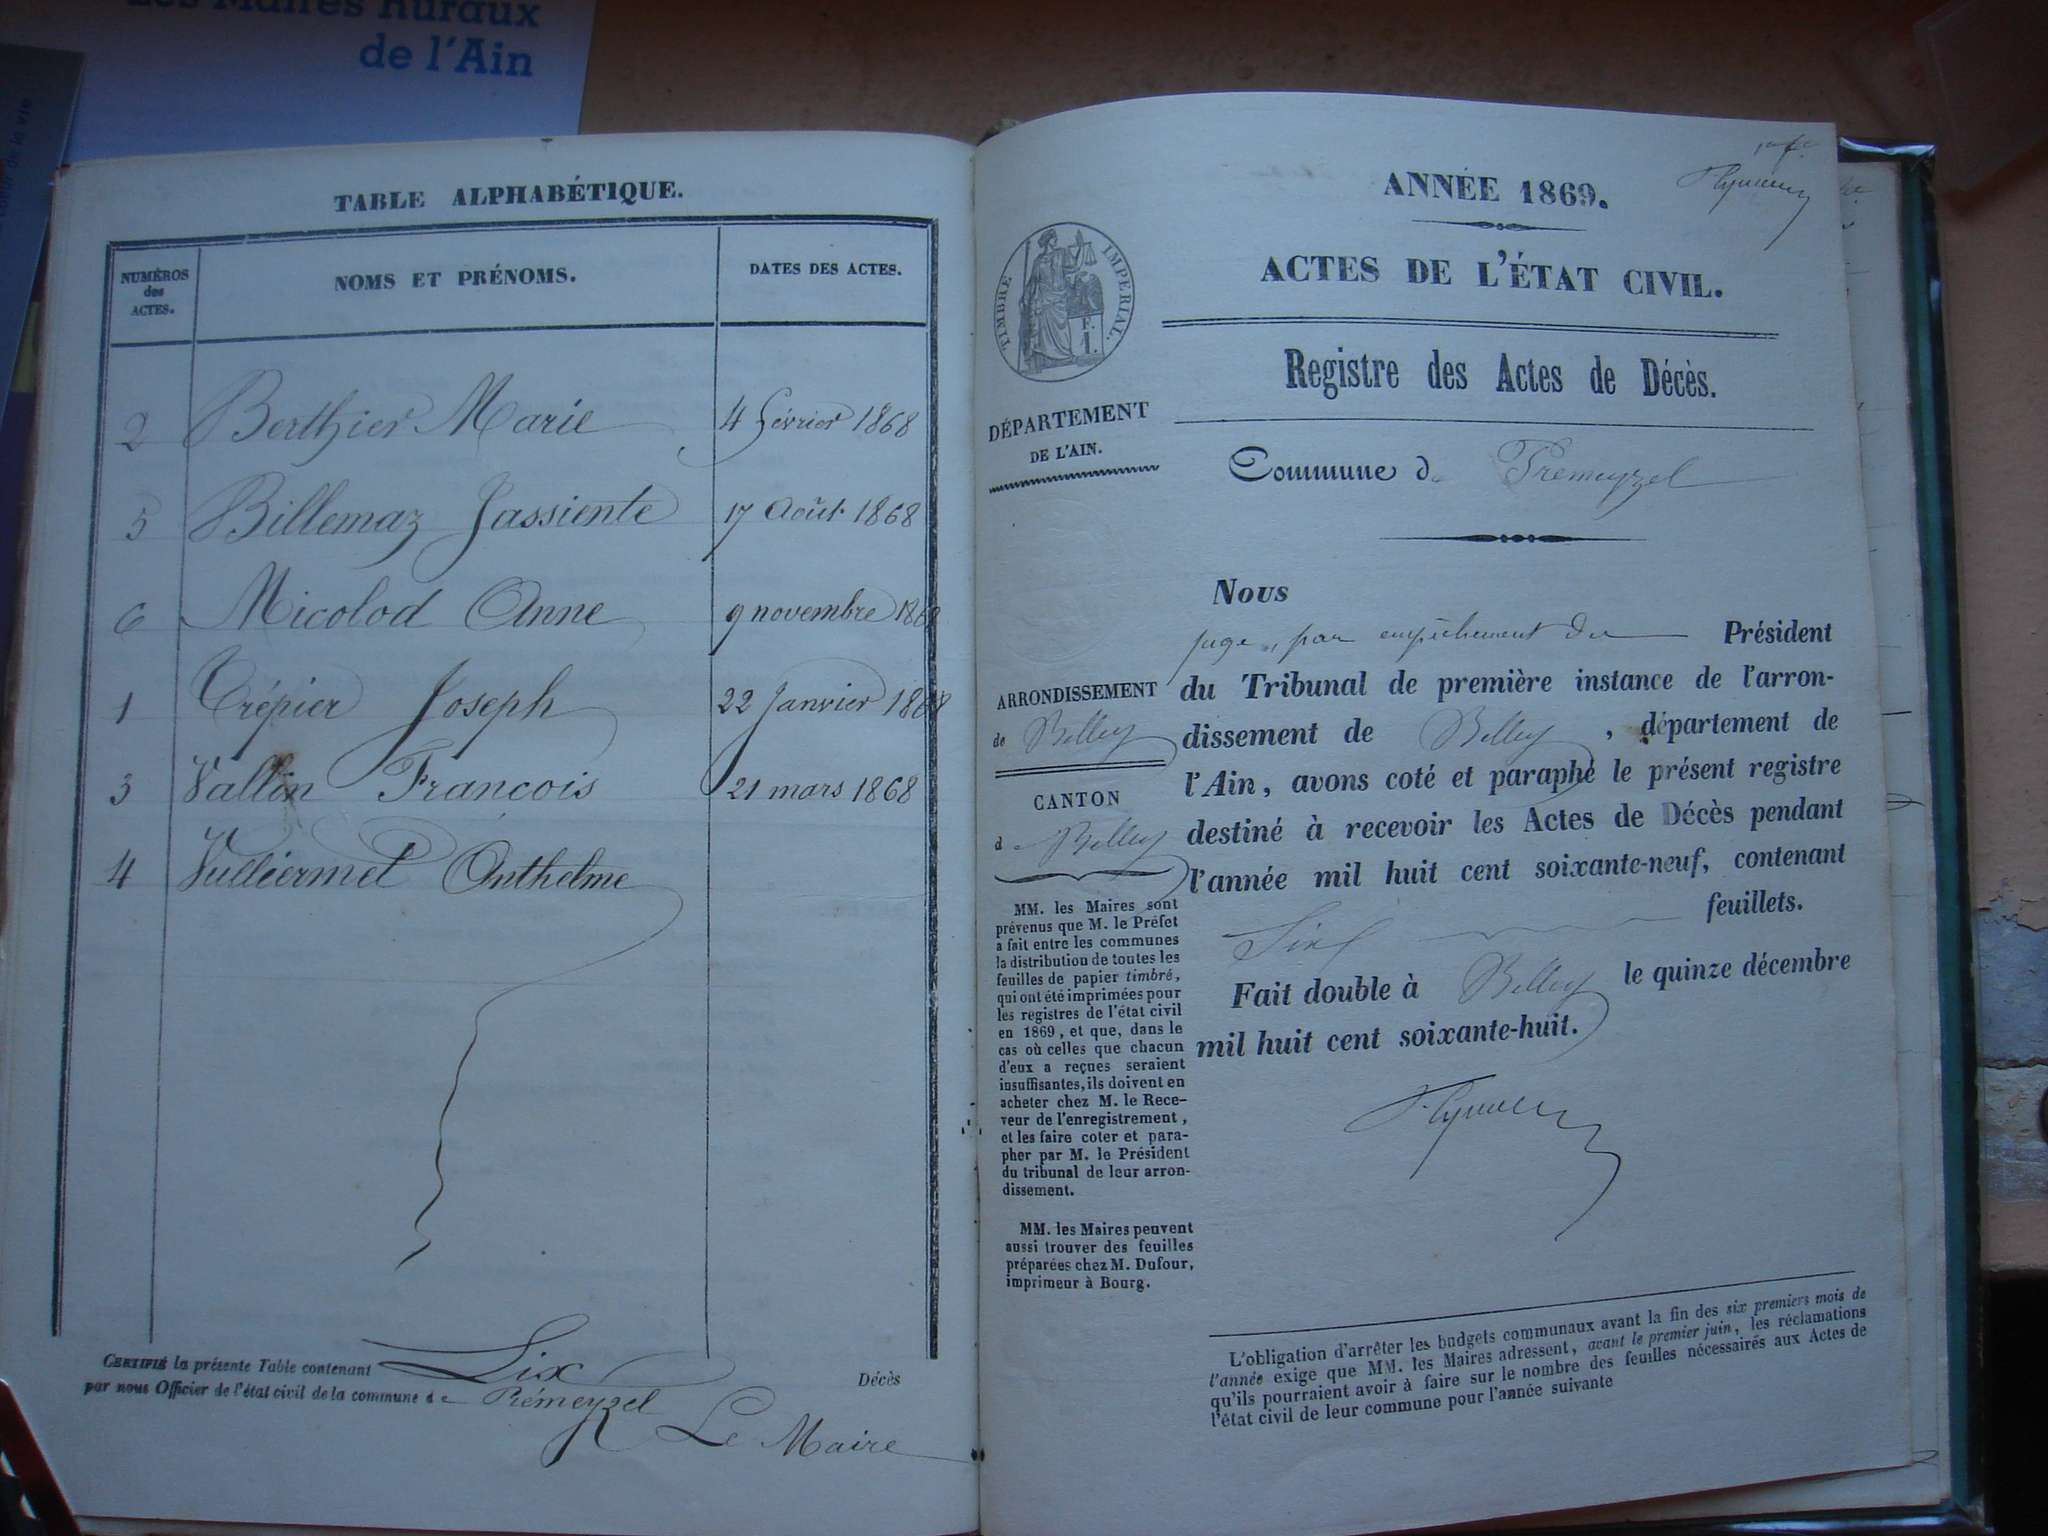 Les Maires Ruraux
de l'Ain
TABLE ALPHABÉTIQUE.
NUMÉROS
des
ACTES.
NOMS ET PRÉNOMS.
DATES DES ACTES.
2 Berthier Marie 4 février 1868
5 Billemaz Jassiente 17 Août 1868
6 Micolod Anne 9 novembre 1868
1 Crépier Joseph 22 Janvier 1868
3 Vallin Francois 21 mars 1868
4 Vulliermet Anthelme
CERTIFIÉ la présente Table contenant Six Décès
par nous Officier de l'état civil de la commune de Prémeyzel
Le Maire
ANNÉE 1869.
ACTES DE L'ÉTAT CIVIL.
TIMBRE IMPERIAL.
F.
1.
Registre des Actes de Décès.
DÉPARTEMENT
DE L'AIN.
Commune de Premeyzel
ARRONDISSEMENT
de Belley
CANTON
de Belley
MM. les Maires sont
prévenus que M. le Préfet
a fait entre les communes
la distribution de toutes les
feuilles de papier timbré,
qui ont été imprimées pour
les registres de l'état civil
en 1869, et que, dans le
cas où celles que chacun
d'eux a reçues seraient
insuffisantes, ils doivent en
acheter chez M. le Rece-
veur de l'enregistrement,
et les faire coter et para-
pher par M. le Président
du tribunal de leur arron-
dissement.
MM. les Maires peuvent
aussi trouver des feuilles
préparées chez M. Dufour,
imprimeur à Bourg.
Nous
juge, par empêchement du Président
du Tribunal de première instance de l'arron-
dissement de Belley, département de
l'Ain, avons coté et paraphé le présent registre
destiné à recevoir les Actes de Décès pendant
l'année mil huit cent soixante-neuf, contenant
Six feuillets.
Fait double à Belley le quinze décembre
mil huit cent soixante-huit.
L'obligation d'arrêter les budgets communaux avant la fin des six premiers mois de
l'année exige que MM. les Maires adressent, avant le premier juin, les réclamations
qu'ils pourraient avoir à faire sur le nombre des feuilles nécessaires aux Actes de
l'état civil de leur commune pour l'année suivante